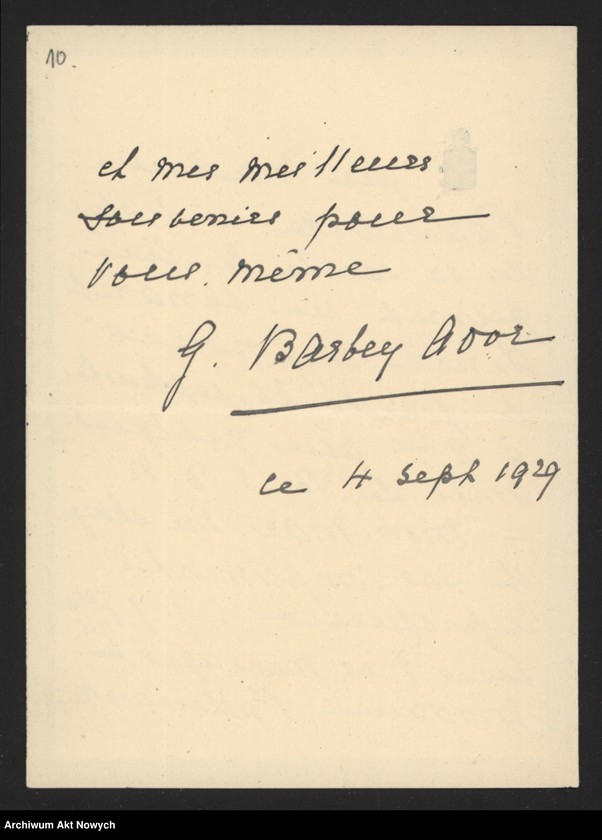 10.
et mes meilleurs
souvenirs pour
vous. même
G. Barbey Ador
ce 4 Sept 1929
Archiwum Akt Nowych